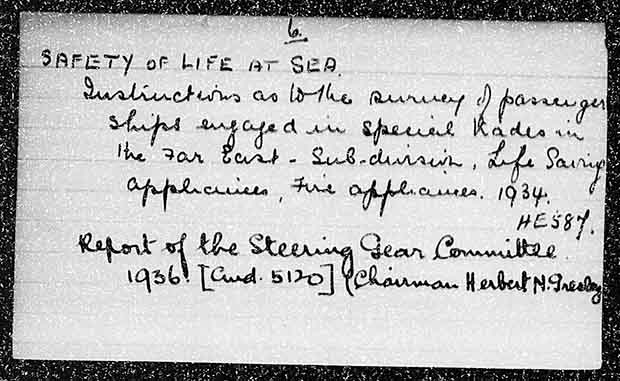 6.
SAFETY OF LIFE AT SEA.
Instructions as to the survey of passenger
ships engaged in special trades in
the Far East - Sub-division, Life Saving
appliances, Fire appliances. 1934.
HE587.
Report of the Steering Gear Committee.
1936. [Cmd. 5120] (Chairman Herbert N. Gresley